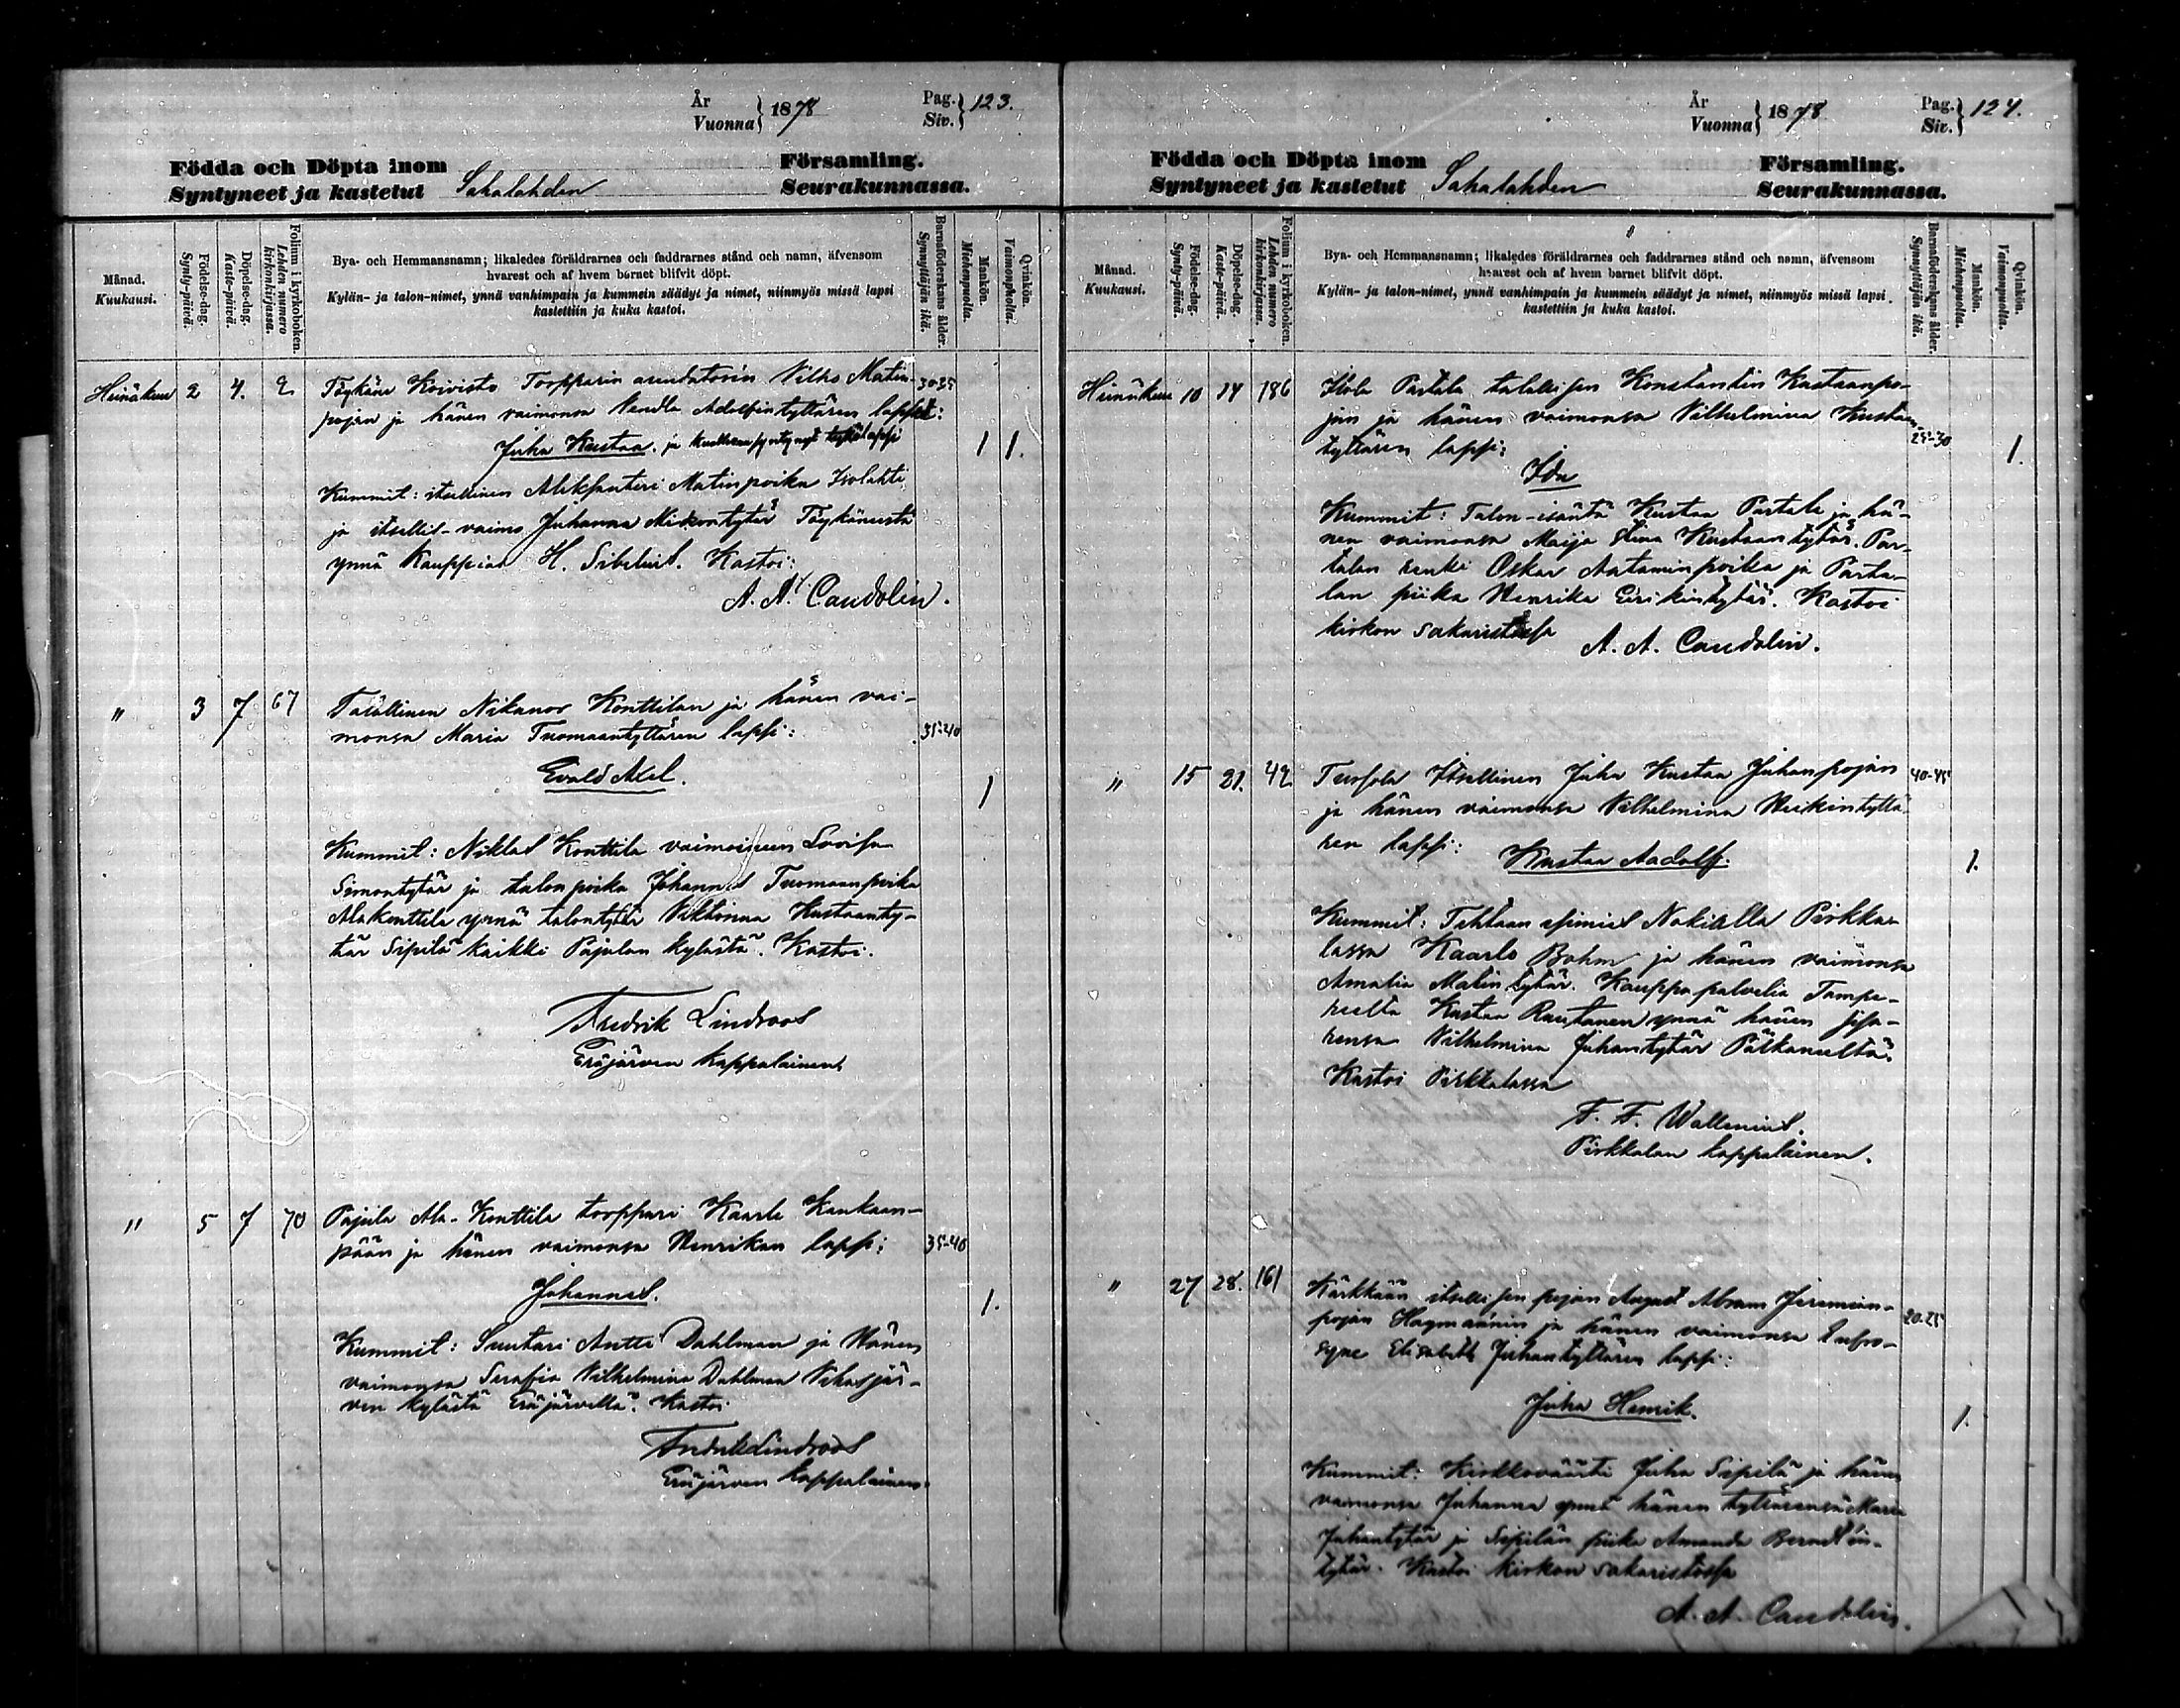 År
Vuonna } 1878
Pag.
Siv. } 123.
Födda och Döpta inom
Syntyneet ja kastetut Sahalahden
Församling.
Seurakunnassa.
Månad.
Kuukausi.
Födelse-dag.
Synty-päivä.
Döpelse-dag.
Kaste-päivä.
Folium i kyrkoboken.
Lehden numero kirkonkirjassa.
Bya- och Hemmansnamn; likaledes föräldrarnes och faddrarnes stånd och namn, äfvensom
hvarest och af hvem barnet blifvit döpt.
Kylän- ja talon-nimet, ynnä vanhimpain ja kummein säädyt ja nimet, niinmyös missä lapsi
kastettiin ja kuka kastoi.
Barnaföderskans ålder.
Synnyttäjän ikä.
Mankön.
Miehenpuolia.
Qvinkön.
Vaimonpuolia.
Heinäkuu 2 4. 2 Töykäne Koivisto Torpparin arendatorin Vilho Matin- 30-35
pojan ja hänen vaimonsa Vendla Adolfintyttären lapset:
Juha Kustaa. ja kuolleena syntynyt tyttölapsi 1 1.
Kummit: itsellinen Aleksanteri Matinpoika Isolahti
ja itsellis-vaimo Juhanna Mikontytär Töykäneestä
ynnä Kauppias H. Sibelius. Kastoi:
A. A. Caudolin.
" 3 7 67 Talollinen Nikanor Konttilan ja hänen vai-
monsa Maria Tuomaantyttären lapsi: 35-40
Evald Axel. 1
Kummit: Niklas Konttila vaimoineen Lovisa
Simontytär ja talonpoika Johannes Tuomaanpoika
Alakonttila ynnä talontytär Viktoriina Kustaanty-
tär Sipilä kaikki Pajulan kylästä. Kastoi.
Fredrik Lindroos
Eräjärven kappalainen
" 5 7 70 Pajula Ala-Konttila torppari Kaarle Kankaan-
pään ja hänen vaimonsa Henrikan lapsi: 35-40
Johannes. 1.
Kummit: Suutari Antti Dahlman ja Hänen
vaimonsa Serafia Vilhelmina Dahlman Vihasjär-
ven kylästä Eräjärvellä. Kastoi
Fredrik Lindroos
Eräjärven kappalainen.
År
Vuonna } 1878
Pag.
Siv. } 124.
Födda och Döpta inom
Syntyneet ja kastetut Sahalahden
Församling.
Seurakunnassa.
Månad.
Kuukausi.
Födelse-dag.
Synty-päivä.
Döpelse-dag.
Kaste-päivä.
Folium i kyrkoboken.
Lehden numero kirkonkirjassa.
Bya- och Hemmansnamn; likaledes föräldrarnes och faddrarnes stånd och namn, äfvensom
hvarest och af hvem barnet blifvit döpt.
Kylän- ja talon-nimet, ynnä vanhimpain ja kummein säädyt ja nimet, niinmyös missä lapsi
kastettiin ja kuka kastoi.
Barnaföderskans ålder.
Synnyttäjän ikä.
Mankön.
Miehenpuolia.
Qvinkön.
Vaimonpuolia.
Heinäkuu 10 14 186 Partala talollisen Konstantin Kustaanpo-
jan ja hänen vaimonsa Vilhelmina Kustaan-
tyttären lapsi: 25-30 1.
Ida
Kummit: Talon-isäntä Kustaa Partala ja hä-
nen vaimonsa Maija Stina Kustaantytär. Par-
talan renki Oskar Aataminpoika ja Parta-
lan piika Henrika Eerikintytär. Kastoi
kirkon sakaristossa A. A. Caudolin.
" 15 21. 42 Itsellinen Juha Kustaa Juhanpojan 40-45
ja hänen vaimonsa Vilhelmina Heikintyttä-
ren lapsi: Kustaa Aadolf. 1.
Kummit: Tehtaan Nokialla Pirkka-
lassa Kaarlo Bohm ja hänen vaimonsa
Amalia Matintytär. Kauppapalvelia Tampe-
reelta Kustaa Rautanen ynnä hänen sisa-
rensa Vilhelmina Juhantytär Pälkäneeltä.
Kastoi Pirkkalassa
F. F. Wallenius.
Pirkkalan kappalainen.
" 27 28. 161 Kärkkään itsellisen pojan August Abram Jeremian-
pojan Hagmanin ja hänen vaimonsa Eufro- 20-25
syne Elisabeth Juhantyttären lapsi:
Juha Henrik. 1.
Kummit: Kirkkoväärti Juha Sipilä ja hänen
vaimonsa Juhanna ynnä hänen tyttärensä Maria
Juhantytär ja Sipilän piika Amanda Berndtin-
tytär. Kastoi kirkon sakaristossa
A. A. Caudolin.